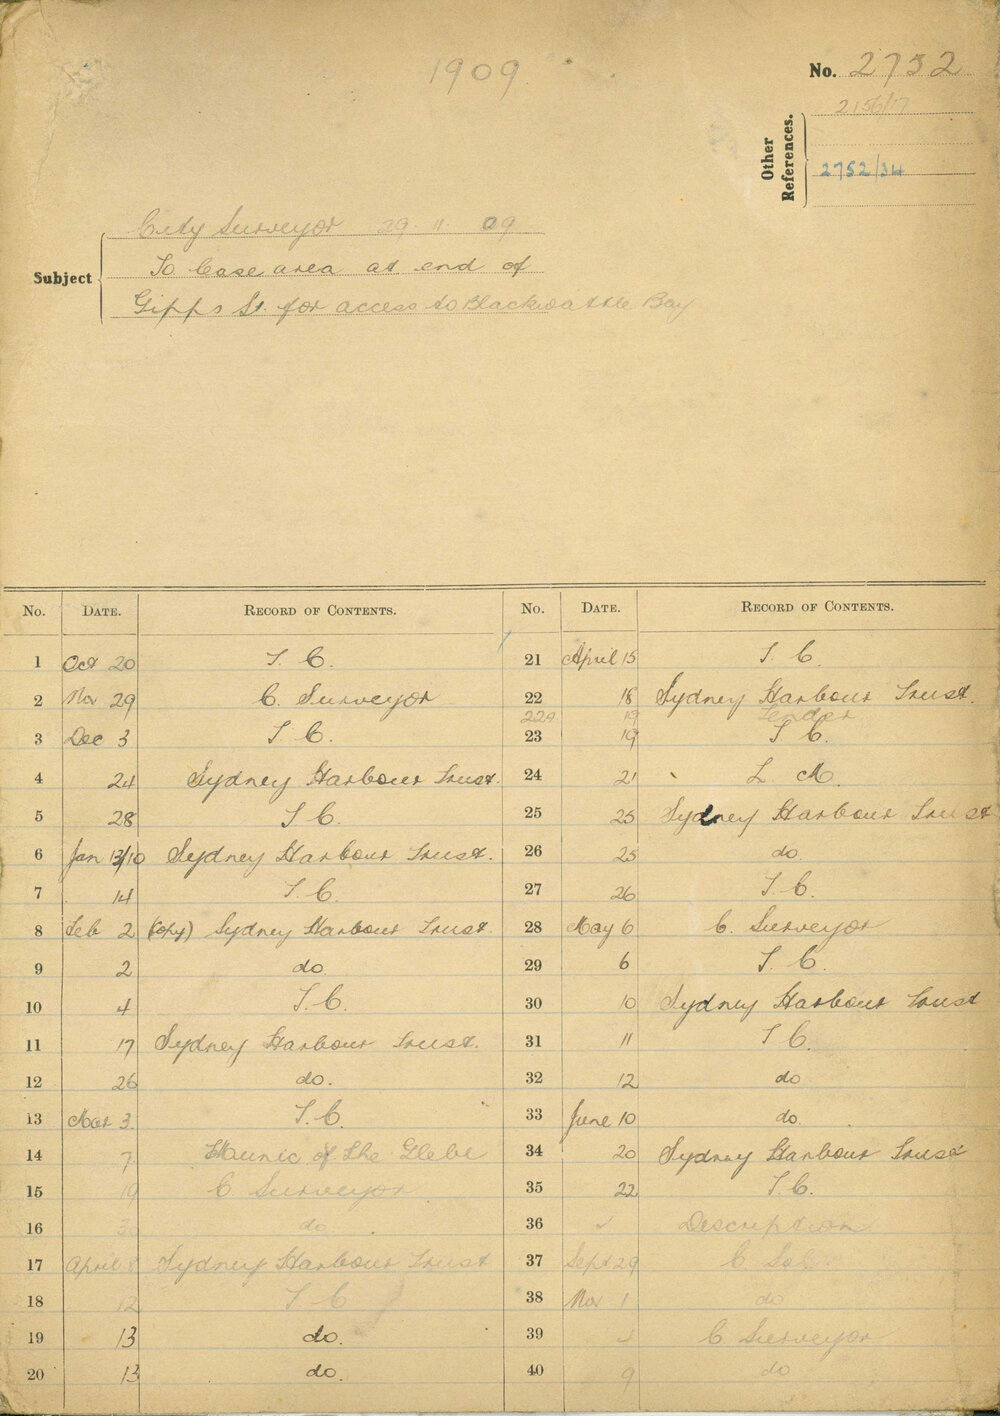 1909
No. 2752
2156/17
Other References.
2752/34
Subject
City Surveyor 29.11.09
To lease area at end of
Gipps St. for access to Blackwattle Bay
No. DATE. RECORD OF CONTENTS.
1 Oct 20 T. C.
2 Nov 29 C. Surveyor
3 Dec 3 T. C.
4 24 Sydney Harbour Trust.
5 28 T. C.
6 Jan 13/10 Sydney Harbour Trust.
7 14 T. C.
8 Feb 2 (Copy) Sydney Harbour Trust.
9 2 do.
10 4 T. C.
11 17 Sydney Harbour Trust.
12 26 do.
13 Mar 3 T. C.
14 7 Munic of the Glebe
15 10 C Surveyor
16 do
17 April Sydney Harbour Trust
18 12 T C
19 13 do.
20 13 do.
No. DATE. RECORD OF CONTENTS.
21 April 15 T. C.
22 18 Sydney Harbour Trust.
22a 19 Tender
23 19 T C.
24 21 L. M.
25 25 Sydney Harbour Trust
26 25 do.
27 26 T. C.
28 May 6 C. Surveyor
29 6 T. C.
30 10 Sydney Harbour Trust
31 11 T C.
32 12 do
33 June 10 do.
34 20 Sydney Harbour Trust
35 22 T. C.
36 Description
37 Sept 29 C.
38 Nov 1 do
39 C. Surveyor
40 9 do